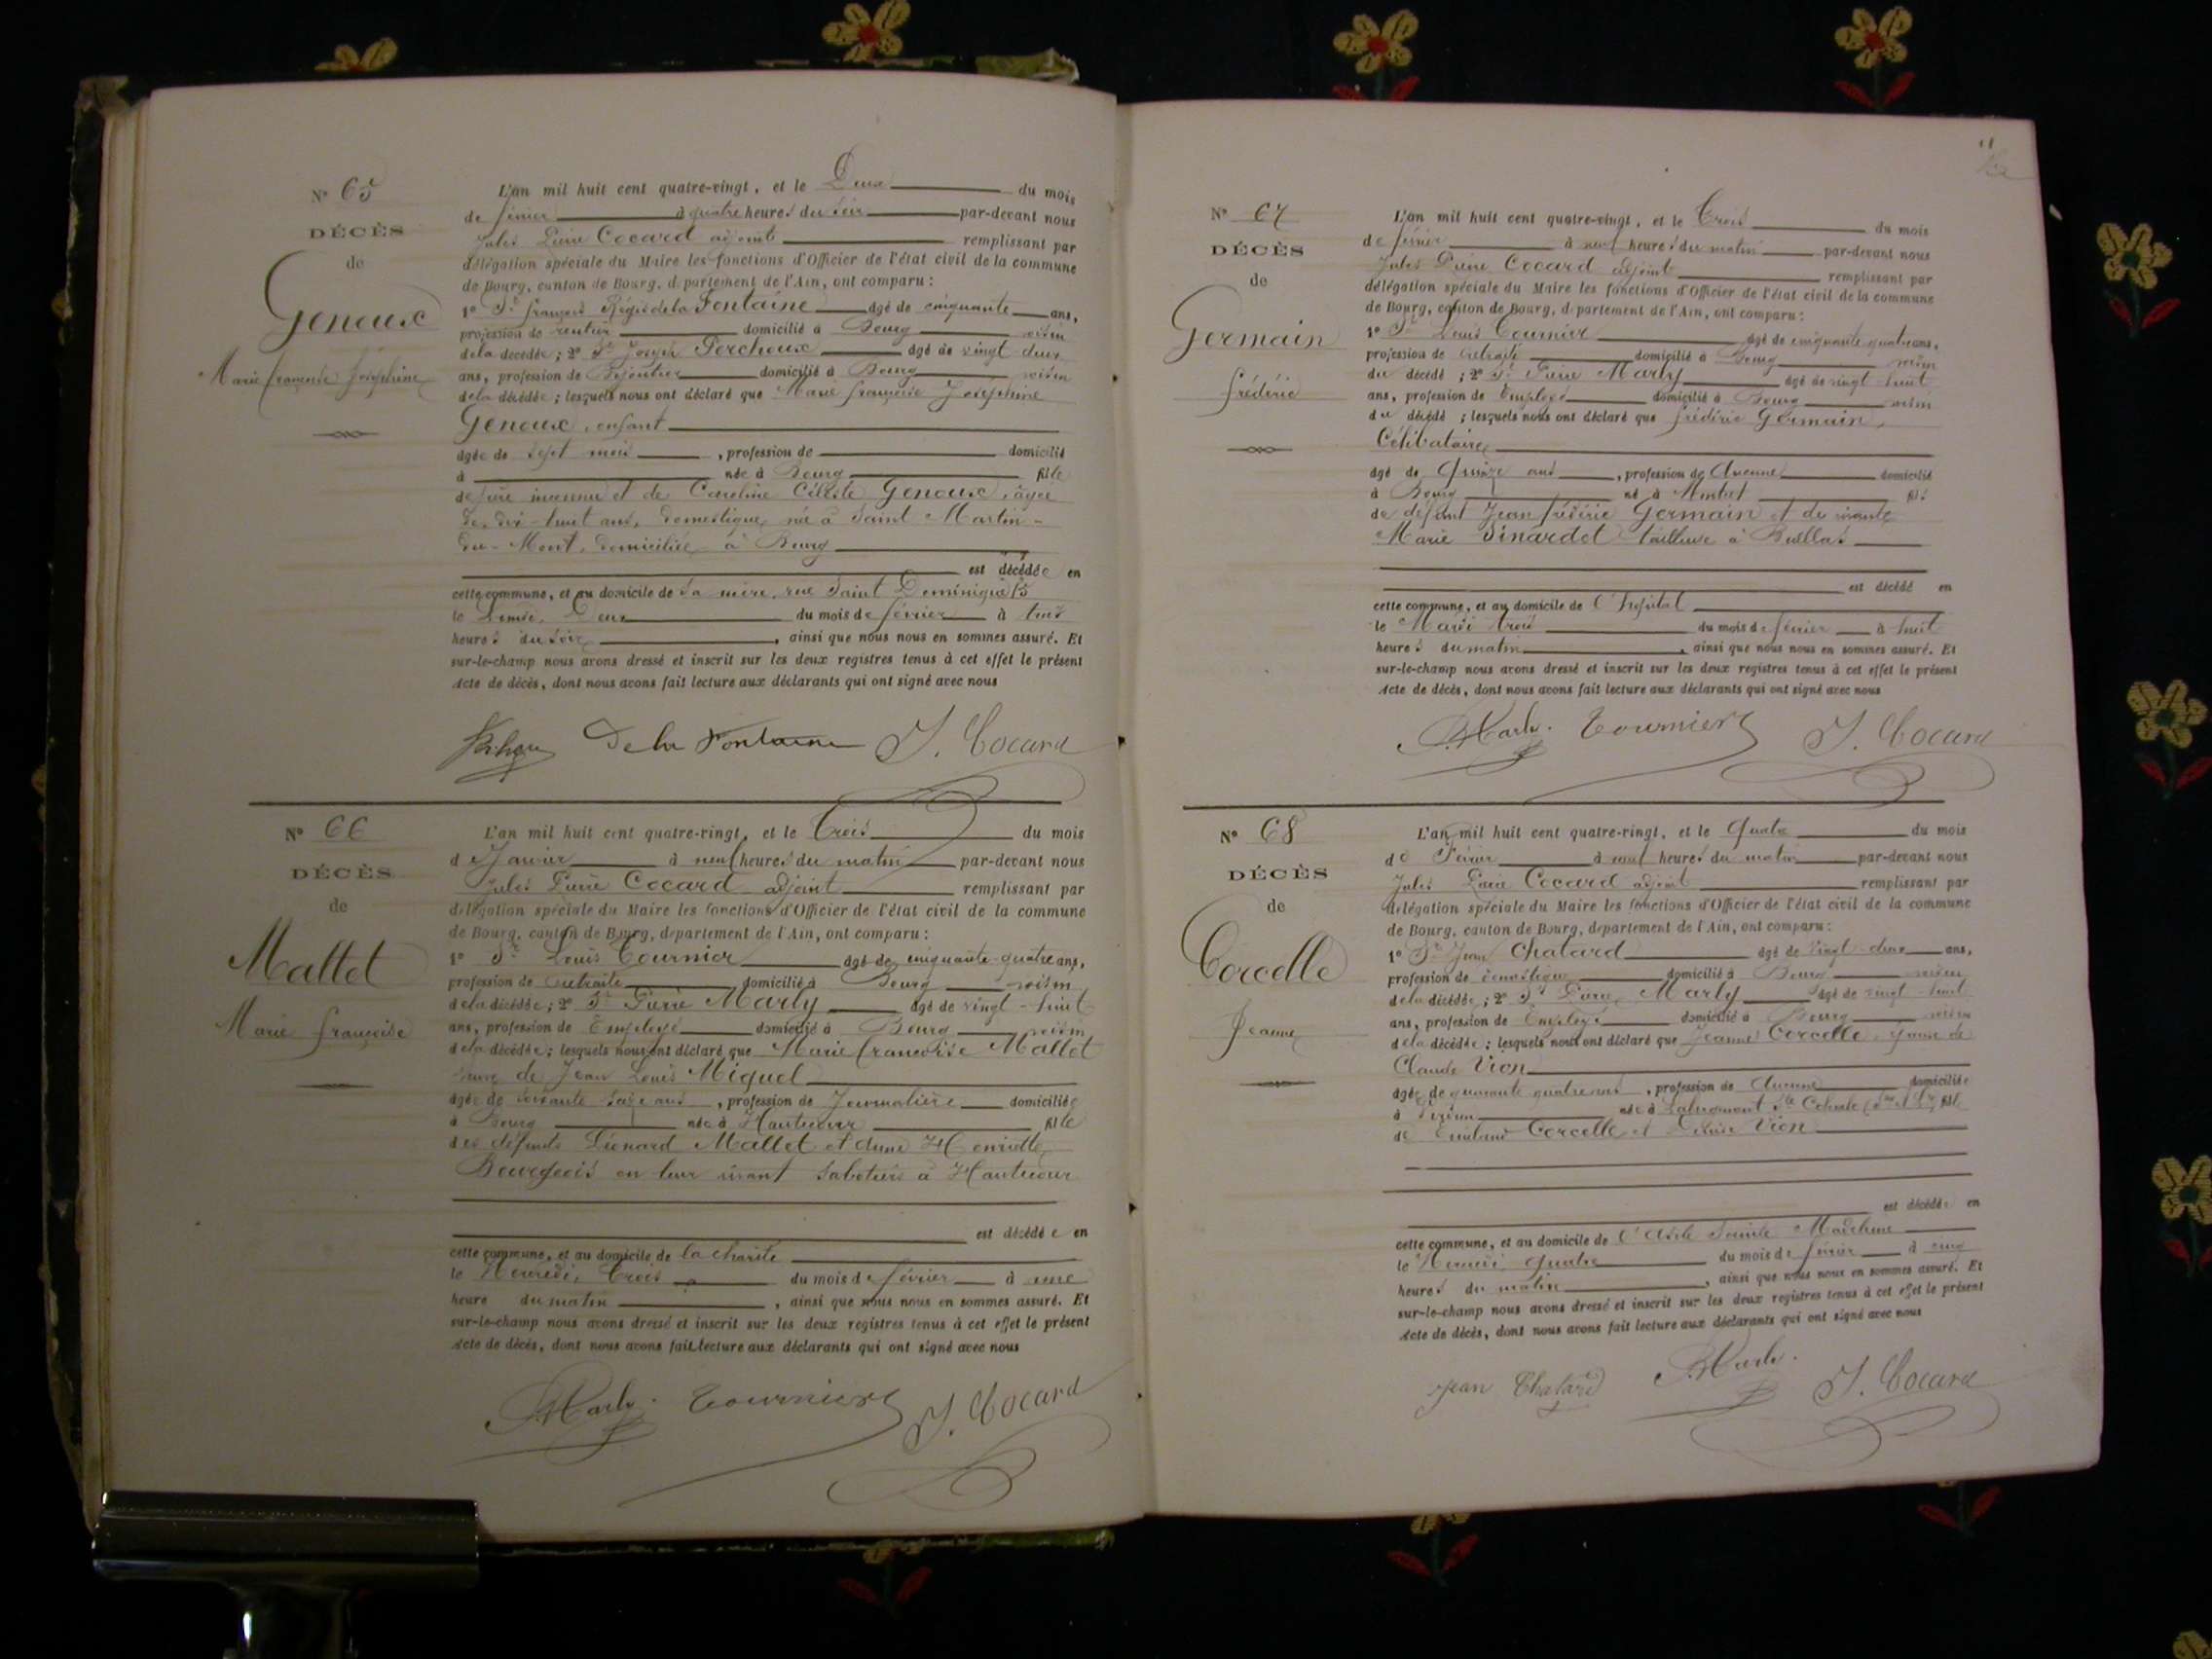 N° 65
DÉCÈS
de
Genoux
Marie françoise Joséphine
L'an mil huit cent quatre-vingt, et le Deux du mois
de février à quatre heures du soir par-devant nous
Jules Pierre Cocard adjoint remplissant par
délégation spéciale du Maire les fonctions d'Officier de l'état civil de la commune
de Bourg, canton de Bourg, département de l'Ain, ont comparu :
1° Sr françois Régis de la Fontaine âgé de cinquante ans,
profession de rentier domicilié à Bourg voisin
de la décédée ; 2° Sr Joseph Percheux âgé de vingt-deux
ans, profession de Bijoutier domicilié à Bourg voisin
de la décédée ; lesquels nous ont déclaré que Marie françoise Joséphine
Genoux, enfant
âgée de sept mois, profession de domicilié
à née à Bourg fille
de père inconnu et de Caroline Céleste Genoux, âgée
de dix-huit ans, domestique, née à Saint-Martin-
du-Mont, domiciliée à Bourg
est décédée en
cette commune, et au domicile de sa mère, rue Saint Dominique 15
le Lundi Deux du mois de février à trois
heures du soir, ainsi que nous nous en sommes assuré. Et
sur-le-champ nous avons dressé et inscrit sur les deux registres tenus à cet effet le présent
Acte de décès, dont nous avons fait lecture aux déclarants qui ont signé avec nous
De la Fontaine J. Cocard
N° 66
DÉCÈS
de
Mallet
Marie françoise
L'an mil huit cent quatre-vingt, et le Trois du mois
d Janvier à neuf heures du matin par-devant nous
Jules Pierre Cocard adjoint remplissant par
délégation spéciale du Maire les fonctions d'Officier de l'état civil de la commune
de Bourg, canton de Bourg, département de l'Ain, ont comparu :
1° Sr Louis Tournier âgé de cinquante-quatre ans,
profession de retraité domicilié à Bourg voisin
de la décédée ; 2° Sr Pierre Marly âgé de vingt-huit
ans, profession de Employé domicilié à Bourg voisin
de la décédée ; lesquels nous ont déclaré que Marie françoise Mallet
veuve de Jean Louis Miguel
âgée de soixante seize ans, profession de Journalière domiciliée
à Bourg née à Hautecour fille
des défunts Léonard Mallet et dune Henriette
Bourgeois en leur vivant Sabotiers à Hautecour
est décédée en
cette commune, et au domicile de la charité
le Trois du mois de février à une
heure du matin, ainsi que nous nous en sommes assuré. Et
sur-le-champ nous avons dressé et inscrit sur les deux registres tenus à cet effet le présent
Acte de décès, dont nous avons fait lecture aux déclarants qui ont signé avec nous
P. Marly. Tournier J. Cocard
N° 67
DÉCÈS
de
Germain
frédéric
L'an mil huit cent quatre-vingt, et le Trois du mois
de février à neuf heures du matin par-devant nous
Jules Pierre Cocard adjoint remplissant par
délégation spéciale du Maire les fonctions d'Officier de l'état civil de la commune
de Bourg, canton de Bourg, département de l'Ain, ont comparu :
1° Sr Louis Tournier âgé de cinquante quatre ans,
profession de retraité domicilié à Bourg voisin
du décédé ; 2° Sr Pierre Marly âgé de vingt-huit
ans, profession de Employé domicilié à Bourg voisin
du décédé ; lesquels nous ont déclaré que frédéric Germain,
Célibataire
âgé de Quinze ans, profession de Aucune domicilié
à Bourg né à fils
de défunt Jean frédéric Germain et de vivante
Marie Sinardet tailleuse à Buellas
est décédé en
cette commune, et au domicile de l'hôpital
le Mardi trois du mois de février à huit
heures du matin, ainsi que nous nous en sommes assuré. Et
sur-le-champ nous avons dressé et inscrit sur les deux registres tenus à cet effet le présent
Acte de décès, dont nous avons fait lecture aux déclarants qui ont signé avec nous
P. Marly. Tournier J. Cocard
N° 68
DÉCÈS
de
Corcelle
Jeanne
L'an mil huit cent quatre-vingt, et le Quatre du mois
de Février à neuf heures du matin par-devant nous
Jules Pierre Cocard adjoint remplissant par
délégation spéciale du Maire les fonctions d'Officier de l'état civil de la commune
de Bourg, canton de Bourg, département de l'Ain, ont comparu :
1° Sr Jean Chatard âgé de vingt-deux ans,
profession de domestique domicilié à Bourg voisin
de la décédée ; 2° Sr Pierre Marly âgé de vingt-huit
ans, profession de Employé domicilié à Bourg voisin
de la décédée ; lesquels nous ont déclaré que Jeanne Corcelle, femme de
Claude Vion
âgée de quarante quatre ans, profession de Aucune domiciliée
à née à fille
de Corcelle et Vion
est décédée en
cette commune, et au domicile de l'Asile Sainte Madeleine
le Mercredi quatre du mois de février à cinq
heures du matin, ainsi que nous nous en sommes assuré. Et
sur-le-champ nous avons dressé et inscrit sur les deux registres tenus à cet effet le présent
Acte de décès, dont nous avons fait lecture aux déclarants qui ont signé avec nous
Jean Chatard P. Marly. J. Cocard